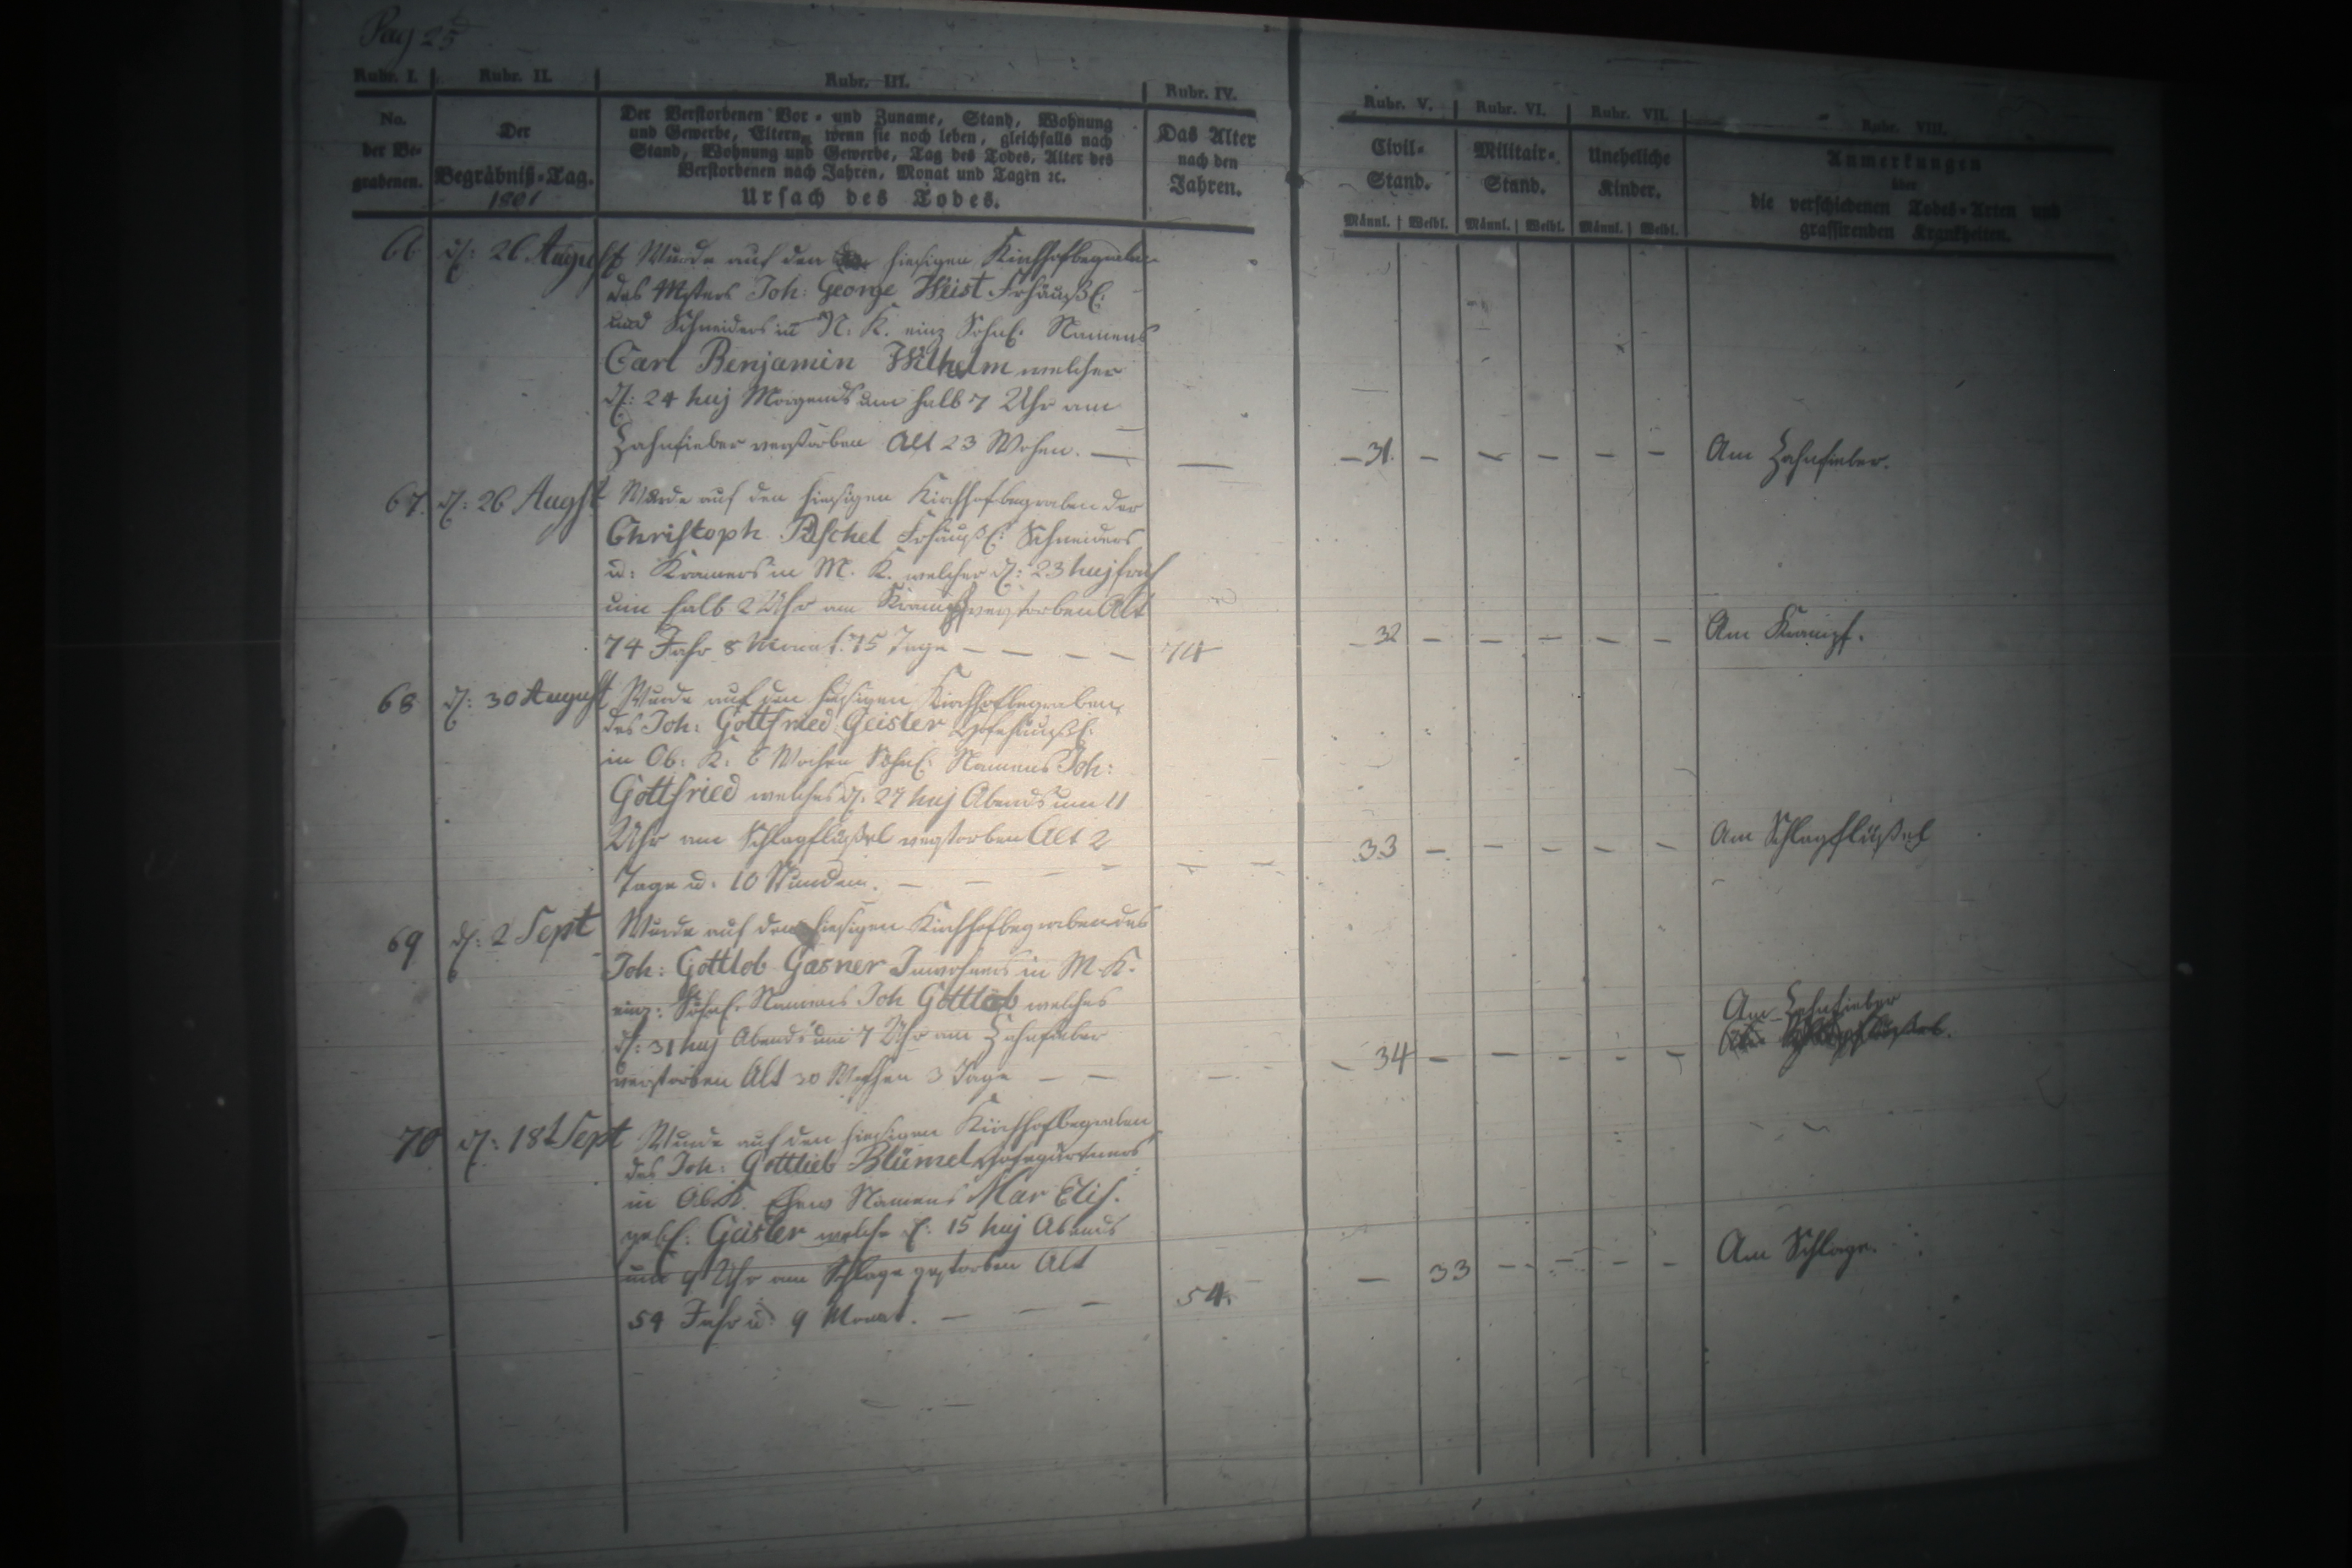 Pag 25
Rubr. I. Rubr. II. Rubr. III. Rubr. IV. Rubr. V. Rubr. VI. Rubr. VII. Rubr. VIII.
No. der Be- grabenen.
Der Begräbniß-Tag. 1801
Der Verstorbenen Vor- und Zuname, Stand, Wohnung
und Gewerbe, Eltern, wenn sie noch leben, gleichfalls nach
Stand, Wohnung und Gewerbe, Tag des Todes, Alter des
Verstorbenen nach Jahren, Monat und Tagen ꝛc.
Ursach des Todes.
Das Alter nach den Jahren.
Civil- Stand.
Militair- Stand.
Uneheliche Kinder.
Anmerkungen
über
die verschiedenen Todes-Arten und
grassirenden Krankheiten.
Männl. Weibl. Männl. Weibl. Männl. Weibl.
66 d: 26 August Wurde auf den hiesigen Kirchhof begraben
des Msters Joh: George Weist Frhäußl:
und Schneiders in N: K. einz Söhnl: Namens
Carl Benjamin Wilhelm welcher
d: 24 huj Morgends um halb 7 Uhr am
Zahnfieber verstorben Alt 23 Wochen. — — — 31. — — — — — Am Zahnfieber.
67. d: 26 Augst Wurde auf den hiesigen Kirchhof begraben der
Christoph Frhäußl: Schneiders
u: Kramers in M. K. welcher d: 23 huj früh
um halb 2 Uhr am Krampf verstorben Alt
74 Jahr 8 Monat. 15 Tage — — — — 74 — 32 — — — — — Am Krampf.
68 d: 30 August Wurde auf den hiesigen Kirchhof begraben
des Joh: Gottfried Geisler Hofehäußl:
in Ob: K: 6 Wochen Söhnl: Namens Joh:
Gottfried welches d: 27 huj Abends um 11
Uhr am Schlagflüßel verstorben Alt 2
Tage u: 10 Stunden. — — — — — — 33 — — — — — Am Schlagflüßel
69 d: 2 Sept Wurde auf den hiesigen Kirchhof begraben des
Joh: Gottlob Gasner Inwohners in M. K.
einz: Söhnl: Namens Joh Gottlob welches
d: 31 huj Abends um 7 Uhr am Zahnfieber
verstorben Alt 30 Wochen 3 Tage — — — — 34 — — — — — Am Zahnfieber
70 d: 18t Sept Wurde auf den hiesigen Kirchhof begraben
des Joh: Gottlieb Blümel Hofegärtners
in Ob. K. Ehew Namens Mar Elis.
gebl: Geisler welche d: 15 huj Abends
um 9 Uhr am Schlage gestorben Alt
54 Jahr u: 9 Monat. — — — 54. — 33 — — — — Am Schlage.